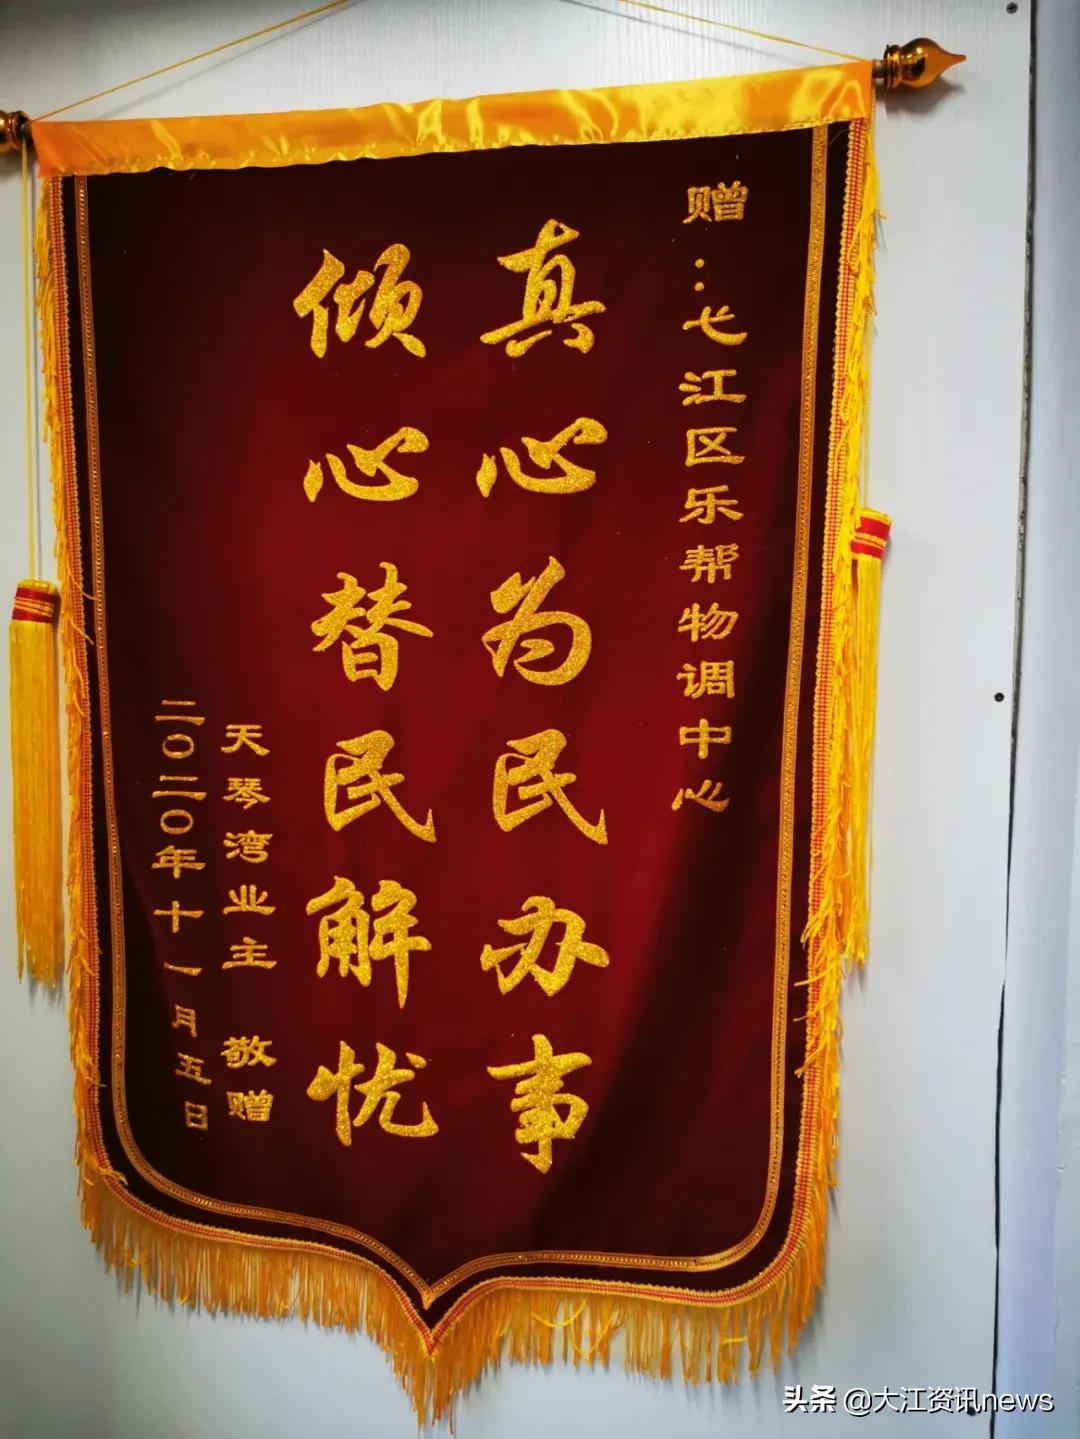 赠:弋江区乐帮物调中心
真心为民办事
倾心替民解忧
天琴湾业主 敬赠
二〇二〇年十一月五日
头条 @大江资讯news